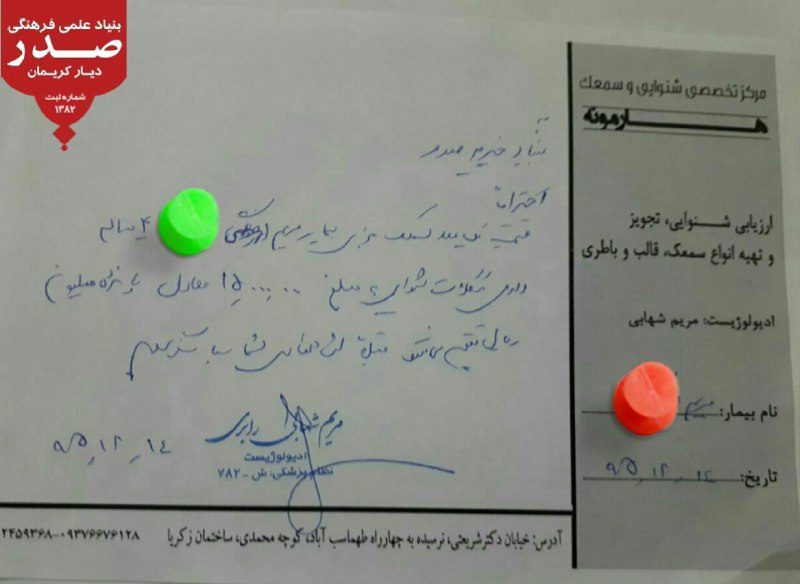 بنیاد علمی فرهنگی
صدر
دیار کریمان
شماره ثبت
۱۳۸۲
مرکز تخصصی شنوایی و سمعک
هارمونه
ارزیابی شنوایی، تجویز
و تهیه انواع سمعک، قالب و باطری
ادیولوژیست: مریم شهابی
نام بیمار: مریم
تاریخ: ۹۵,۱۲,۱۴
بنیاد خیریه صدر
احتراماً
قیمت یک عدد سمعک برای بیمار مریم ۴ ساله
دارای مشکلات شنوایی به مبلغ ۱۵۰۰۰۰۰۰ معادل پانزده میلیون
ریال تقدیم می‌شود قبلاً از همکاری شما سپاسگزارم
مریم شهابی رابری
ادیولوژیست
نظام پزشکی: ش - ۷۸۲
۹۵,۱۲,۱۴
آدرس: خیابان دکتر شریعتی، نرسیده به چهارراه طهماسب آباد، کوچه محمدی، ساختمان زکریا
۰۹۳۷۶۶۷۶۱۲۸-۲۴۵۹۳۶۸